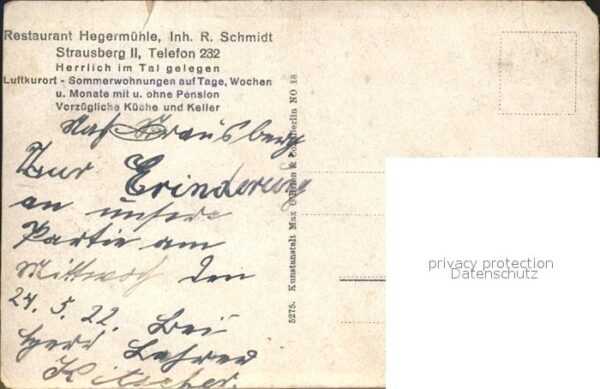 Restaurant Hegermühle, Inh. R. Schmidt
Strausberg II, Telefon 232
Herrlich im Tal gelegen
Luftkurort - Sommerwohnungen auf Tage, Wochen
u. Monate mit u. ohne Pension
Vorzügliche Küche und Keller
Strausberg
Zur Erinderung
an unsere
Partie am
Mittwoch den
24. 5. 22. bei
Herr Lehrer
5275. Kunstanstalt Max & Co. Berlin NO 18
privacy protection
Datenschutz